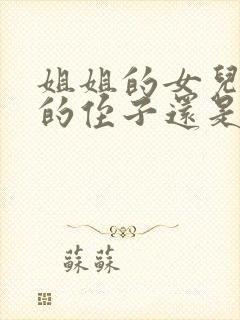 姐姐的女兒
的侄子還是
蘇蘇